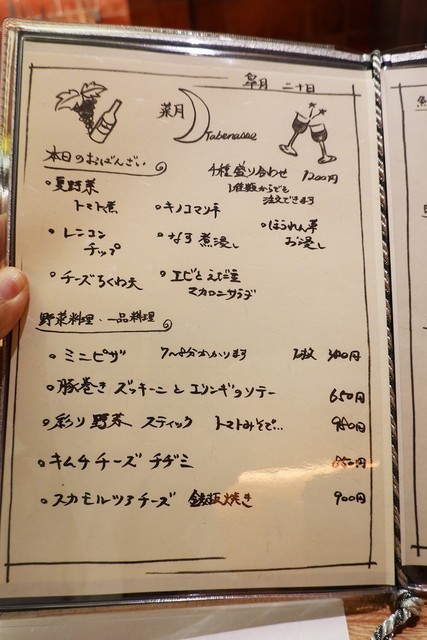 皐月 二十日
菜月
Tabenasae
本日のおばんざい
4種盛り合わせ 1200円
1種類からでも
注文できます
夏野菜
トマト煮
キノコマリネ
レンコン
チップ
なす 煮浸し
ほうれん草
お浸し
チーズちくわ天
エビとえだ豆
マカロニサラダ
野菜料理、一品料理
ミニピザ 7~8分かかります 1枚
豚巻き ズッキーニとエリンギのソテー 650円
彩り野菜 スティック トマトみそで… 980円
キムチチーズ チヂミ 850円
スカモルツァチーズ 鉄板焼き 900円